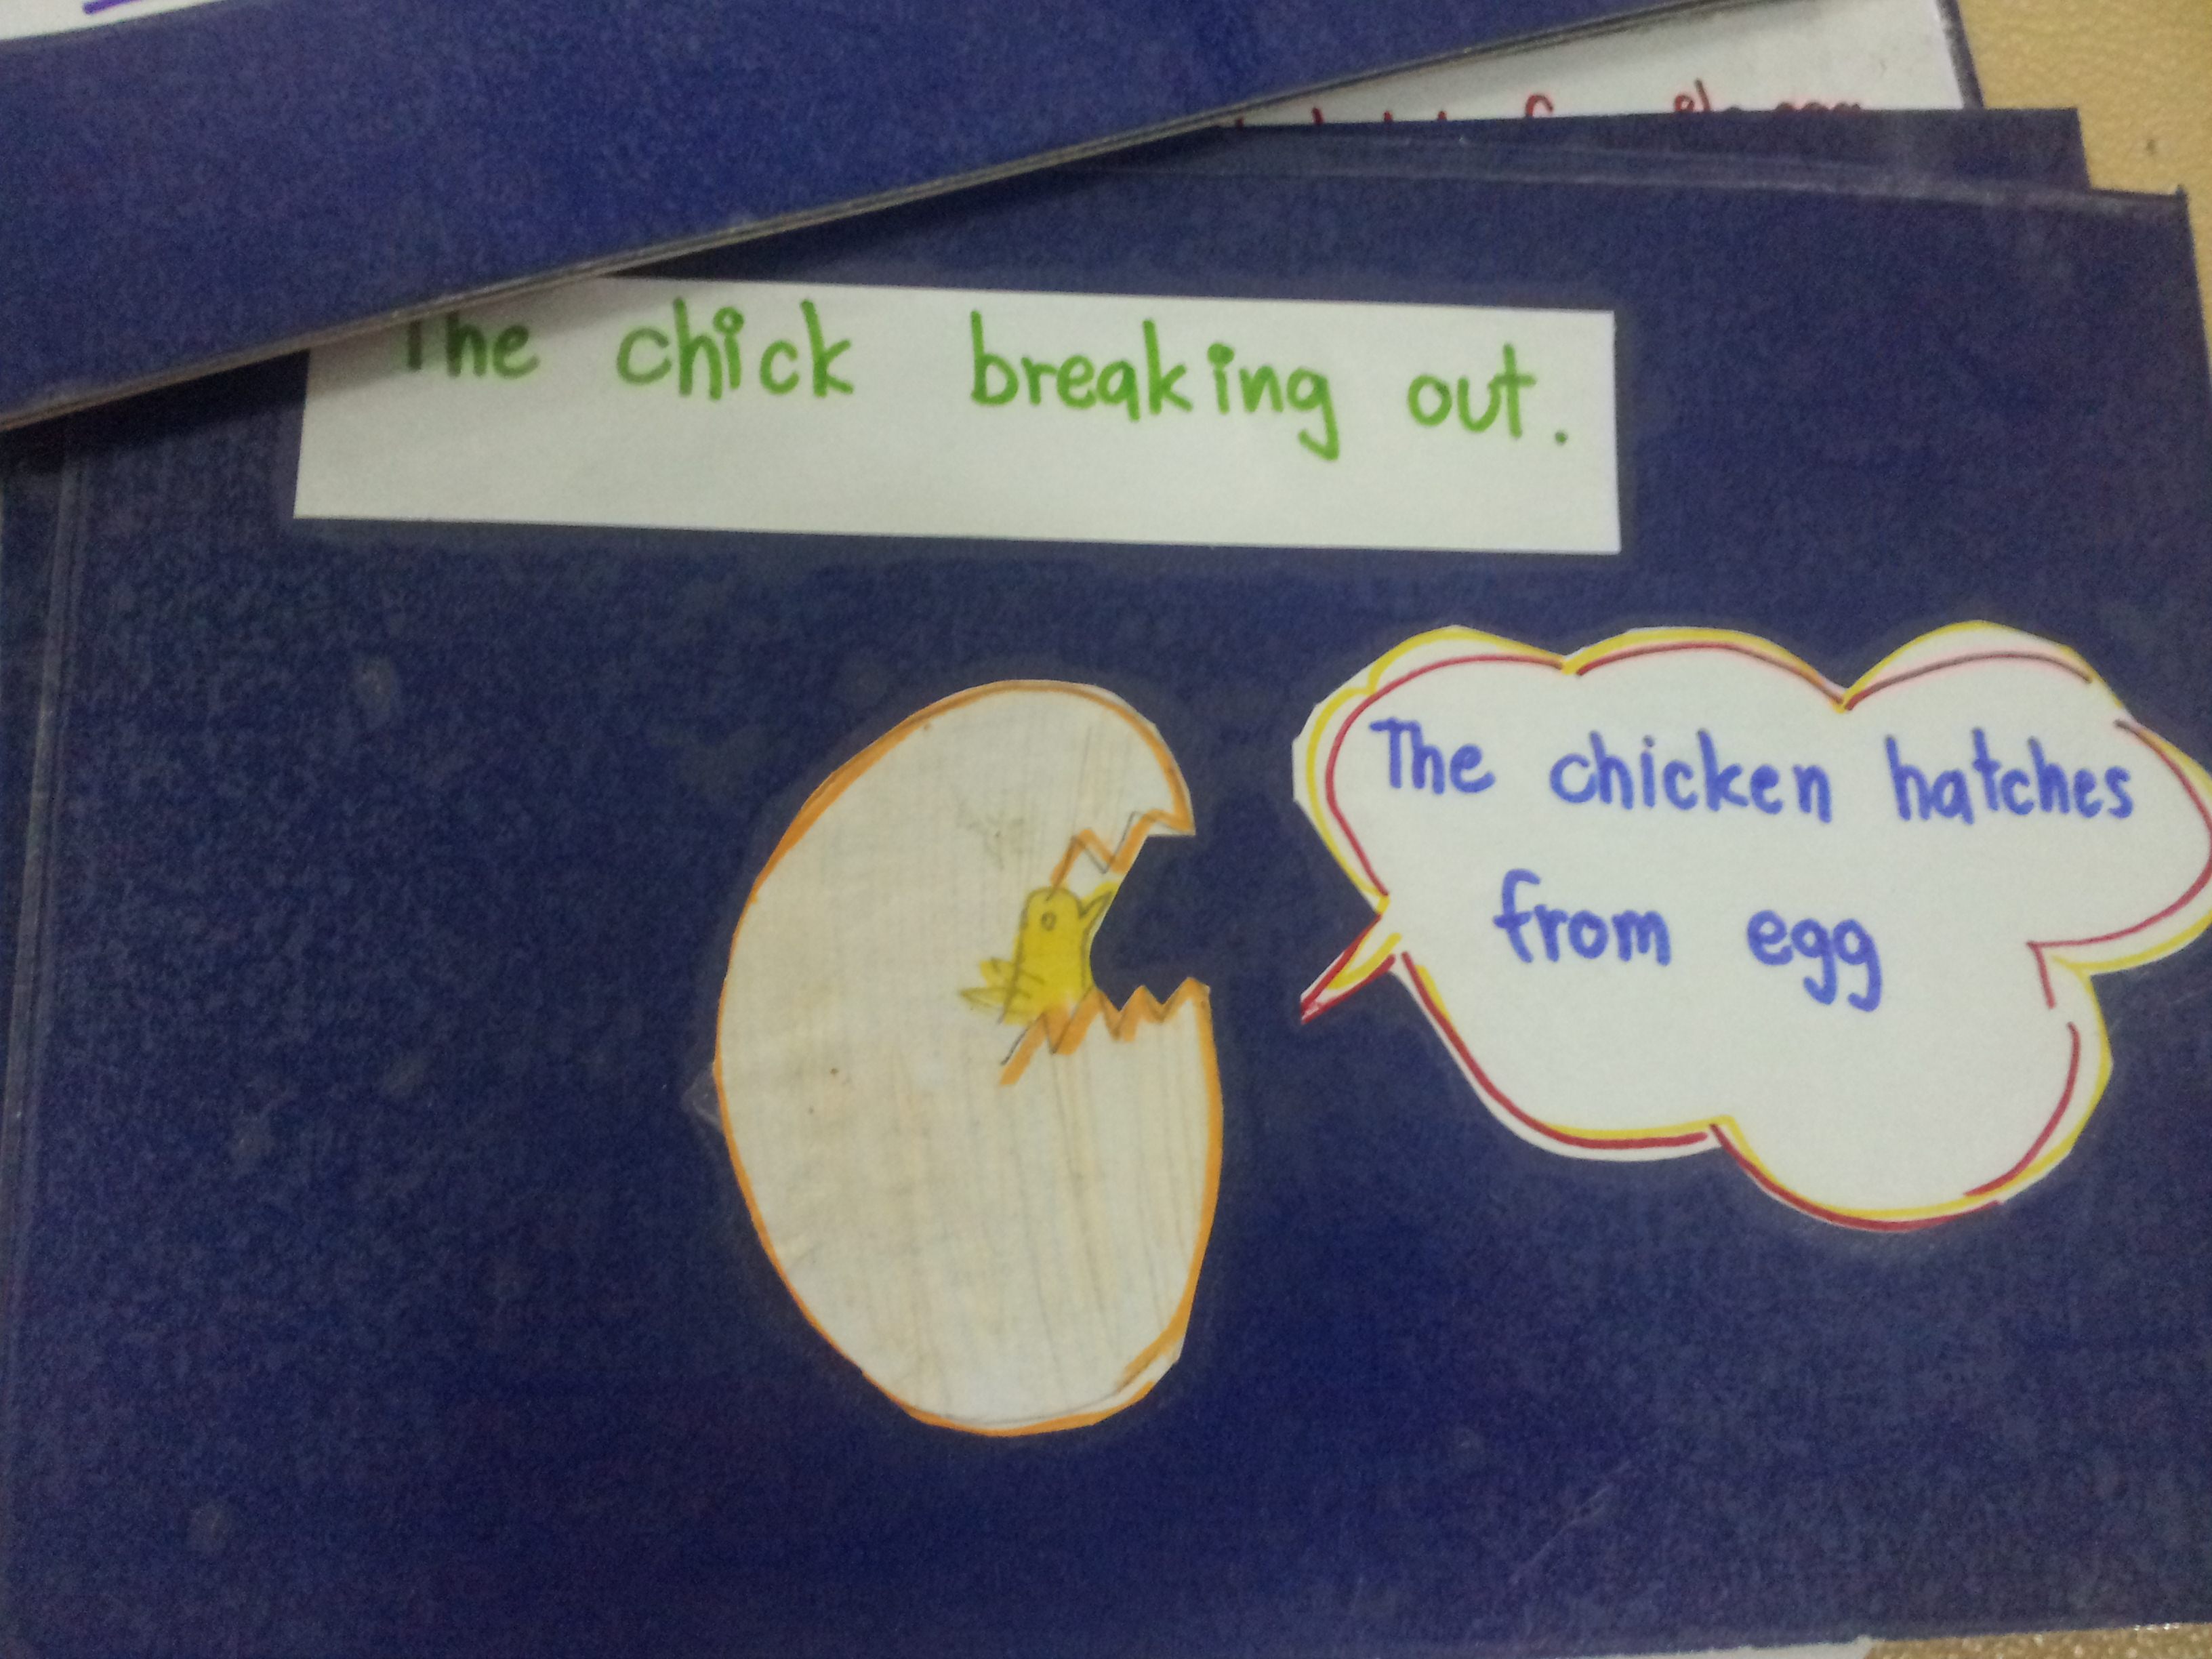 The chick breaking out.
The chicken hatches
from egg